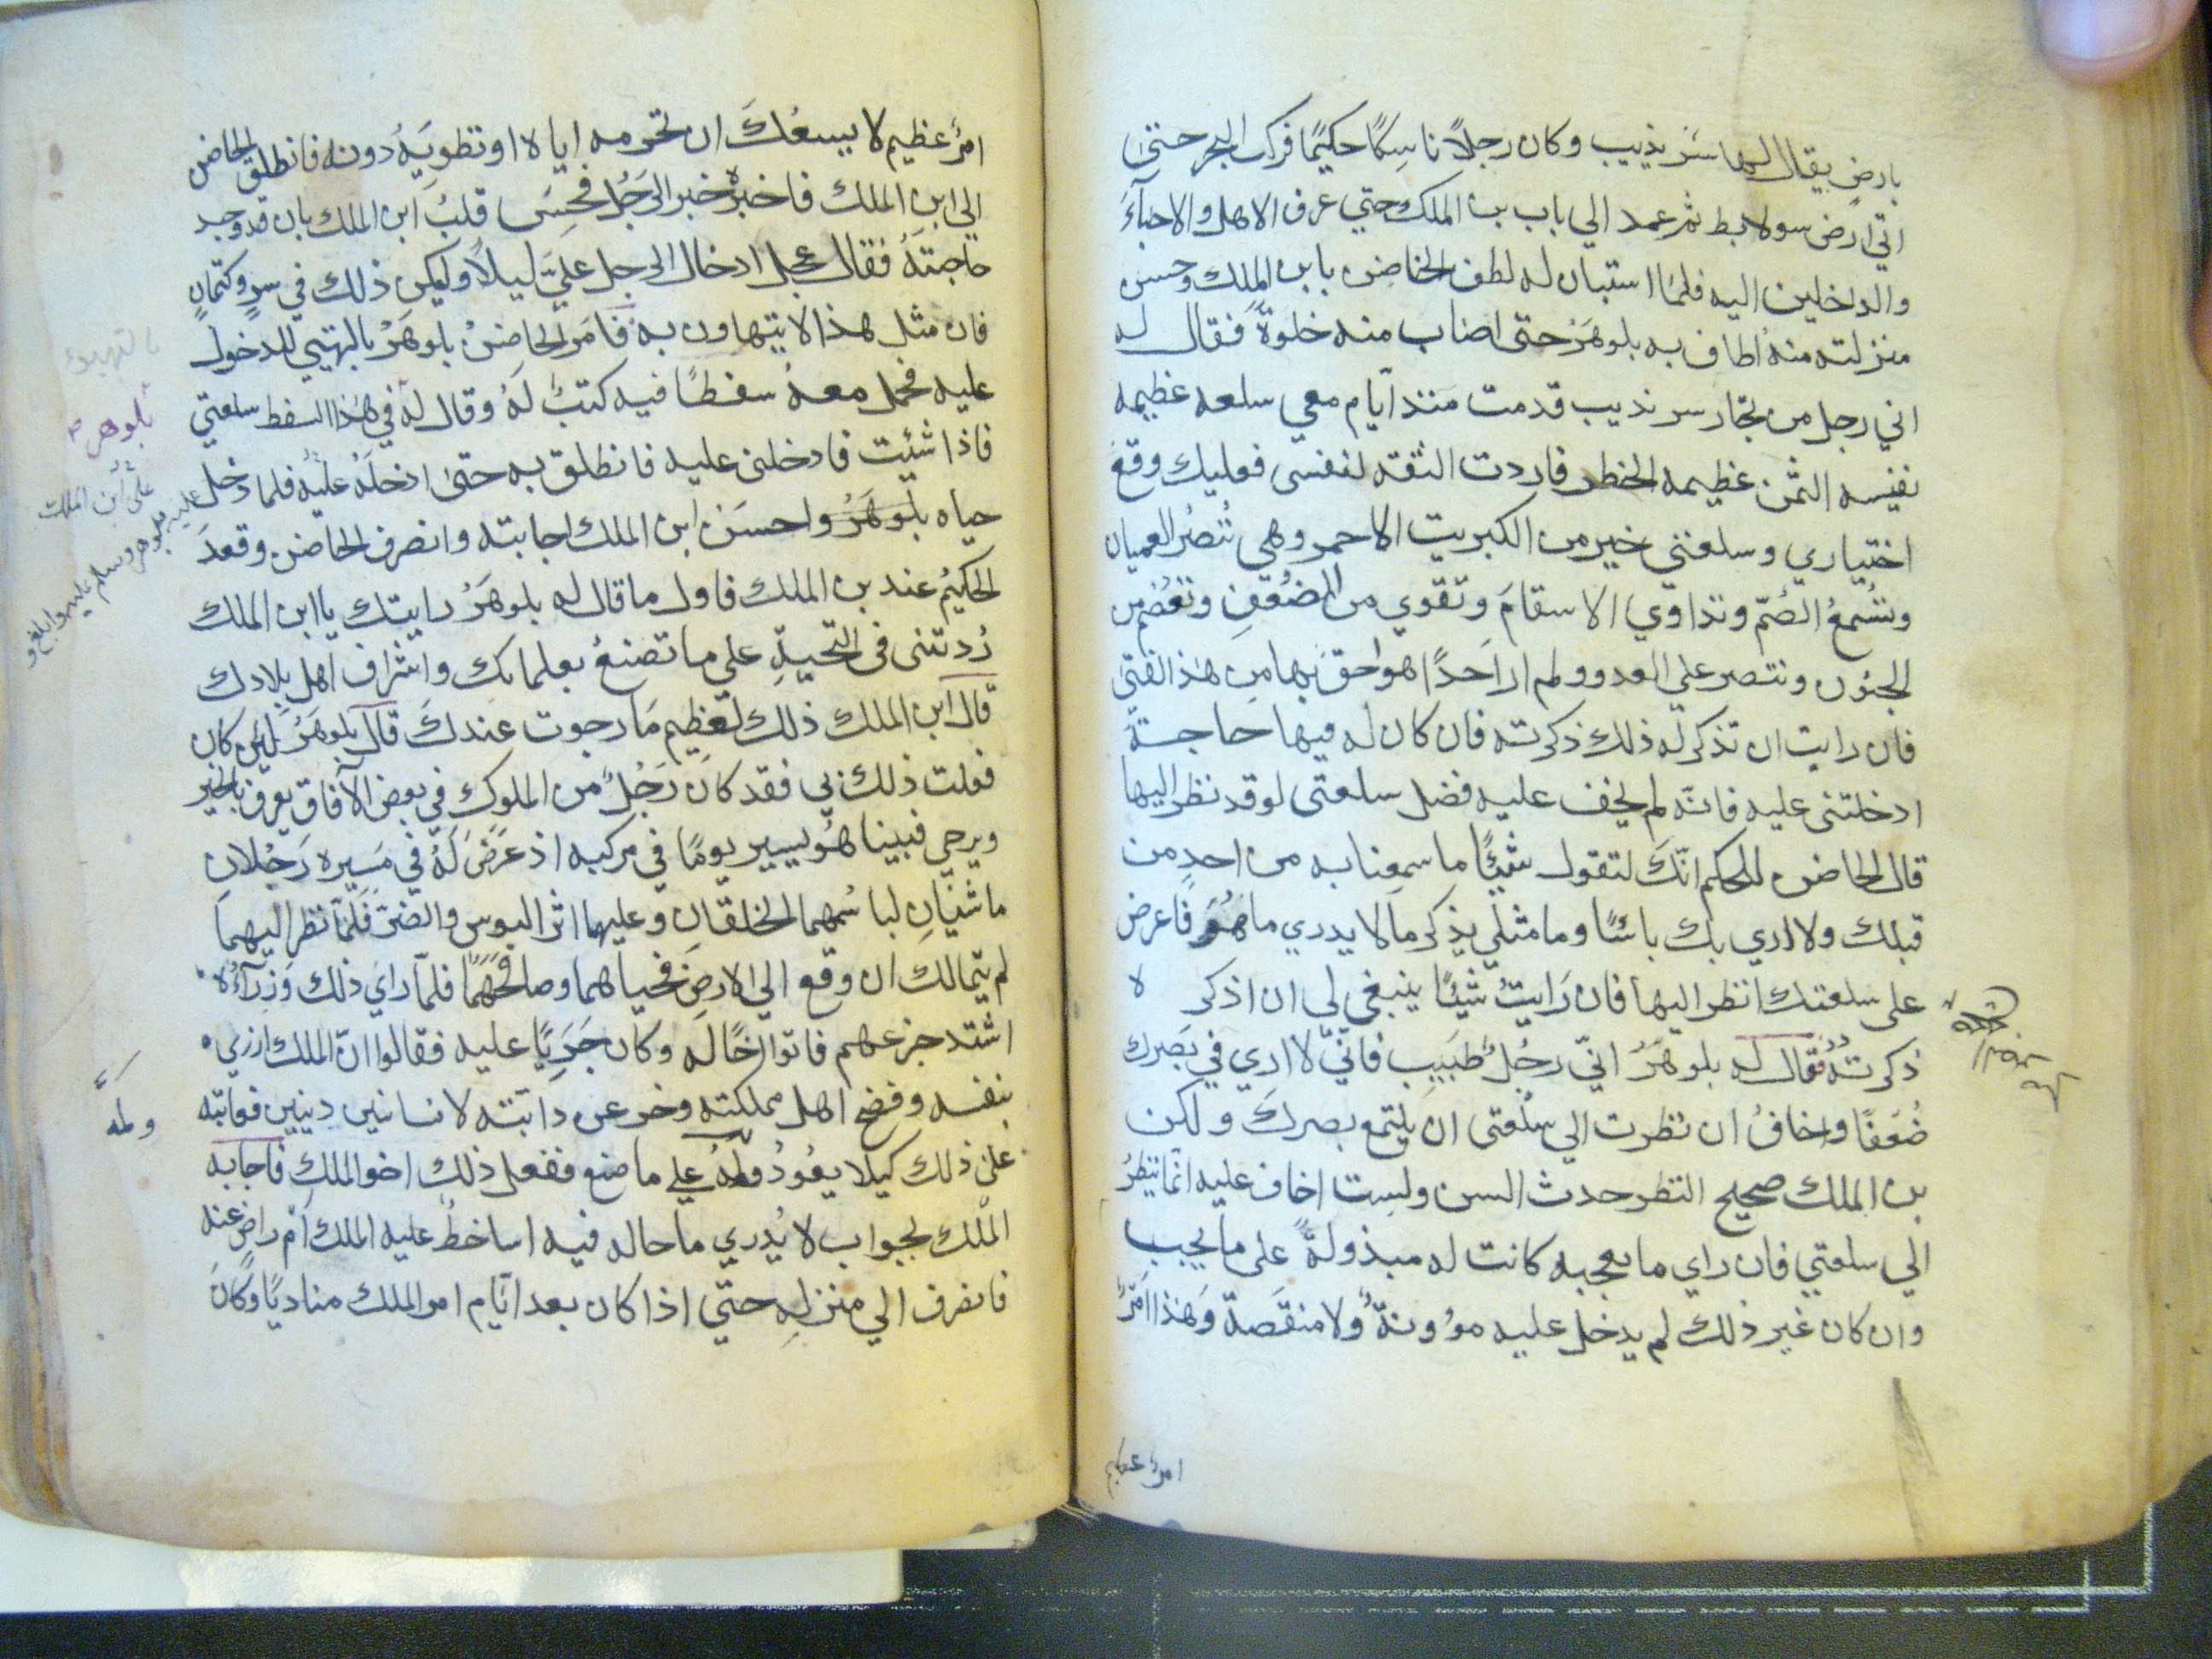 بارض يقال لها سرنديب وكان رجلاً ناسِكًا حكيمًا فركب البحر حتىٰ
اتي ارض سولابط ثم عمد الي باب بن الملك حتي عرف الاهل والاحبآءَ
والداخلين اليه فلمّا استبان له لطف الحاضن بابن الملك وحسن
منزلته منهُ اطاف به بلوهَرُ حتى اصاب منه خلوةً فقال له
اني رجل من تجّار سرنديب قدمت منذ ايّام معي سلعه عظيمه
نفيسه الثمن عظيمه الخطر فاردت الثقه لنفسى فعليك وقعَ
اختياري وسلعتي خير من الكبريت الاحمر وهي تُبصرُ العميان
وتُسمعُ الصُمّ وتداوي الاسقامَ وتقوي من الضُعفِ وتعْصم من
الجنون وتنصر علي العدو ولم ار اَحدًا هو احق بها من هذ الفتى
فان رايت ان تذكر له ذلك ذكرته فان كان له فيها حاجةً
ادخلتنى عليه فانّه لم يخف عليه فضل سلعتى لو قد نظر اليها
قال الحاضن للحكيم انّكَ لتقول شيئًا ما سمعنا به من احدٍ من
قبلك ولا اري بك باسًا وما مثلي يذكر ما لا يدري ما هُوَ فاعرض
على سلعتك انظر اليها فان رَايتُ شيئًا ينبغى لى ان اذكر
ذكرتُهُ فقال له بلوهَرُ انيّ رجُلٌ طَبيبٌ فانيّ لا اري في بَصَرك
ضُعفًا واخافُ ان نظرت الي سلعتى ان يلتمع بصركَ ولكن
بن الملك صحيح النظر حدث السن ولست اخاف عليه انما ينظرُ
الي سلعتي فان راي ما يعجبه كانت له مبذولةً على ما يحب
وان كان غير ذلك لم يدخل عليه مؤونةٌ ولا منقَصةٌ وَهذا امَرٌ
امرٌ عظيم
امرٌ عظيم لا يسعُكَ ان تحرمه اياه او تطويَهُ دونه فانطلق الحاضن
الي ابن الملك فاخبرهُ خبر الرجُل فحسَّ قلبُ ابن الملك بان قد وجد
حاجتهُ فقال عجل ادخال الرجل عليّ ليلاً وليكن ذلك في سرٍ وكتمانٍ
فان مثل هذا لا يتهاون به فامَر الحاضنُ بلوهَرُ بالتهيي للدخول
عليه فحمل معهُ سفطًا فيه كتبٌ لَهُ وقال لهُ في هذا السفط سلعتي
فاذا شئيت فادخلنى عليه فانطلق به حتىٰ ادخلَهُ عليْه فلما دخل
بلوهر
على ابن الملك
عليه بلوهر وسلم عليه وابلغ و
حياه بلوهَرُ واحسَن ابن الملك اجابته وانصرف الحاضن وقعدَ
الحكيُم عند بن الملك فاول ما قال له بلوهَرُ رايتك يا ابن الملك
زُدتنى فى التحيةِ علي ما تصنعُ بعلمائك واشراف اهل بلادك
قال ابن الملك ذلك لعَظيم مَا رجوت عندكَ قالَ بلوهَرُ لَئن كان
فعلت ذلك بي فقد كانَ رَجُلٌ من الملوك في بعض الآفاق يعرف بالخير
ويرجي فبينا هُو يسير يومًا في مركبه اذ عَرَضَ لَهُ في مسَيره رَجُلان
ماشيَانِ لباسُهما الخلقان وعليهما اثر البوس والضرّ فلمّا نظر اليهما
لم يتمالك ان وقع الي الارض فحياهما وصافحهما فلمّا راي ذلك وَزرآءُه
اشتد جزعهم فاتوا اخًا له وكان جَرِيًا عليه فقالوا انّ الملك ازري
بنفسه وفضح اهل مملكته وخر عن دابّته لانسانين دنيين فعاتبه
علىٰ ذلك كيلا يعُودُ ولُمهُ علي ما صنع ففعل ذلك اخو الملك فاجابه
ولمه
الملك بجواب لا يُدري ما حاله فيه اساخطٌ عليه الملك ام راضٍ عنه
فانصرف الي منزلِه حتيّ اذا كان بعد ايّام امر الملك مناديًا وكانَ